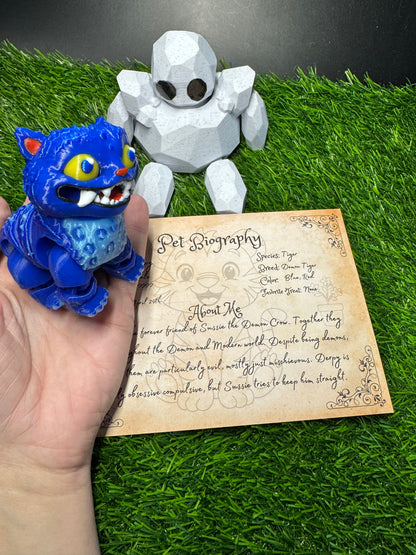 Pet Biography
Species: Tiger
Breed: Demon Tiger
Color: Blue, Red
Favorite Treat: None
About Me
forever friend of Sussie the Demon Crow. Together they
the Demon and Modern world. Despite being demons,
are particularly evil, mostly just mischievous. Derpy is
obsessive compulsive, but Sussie tries to keep him straight.